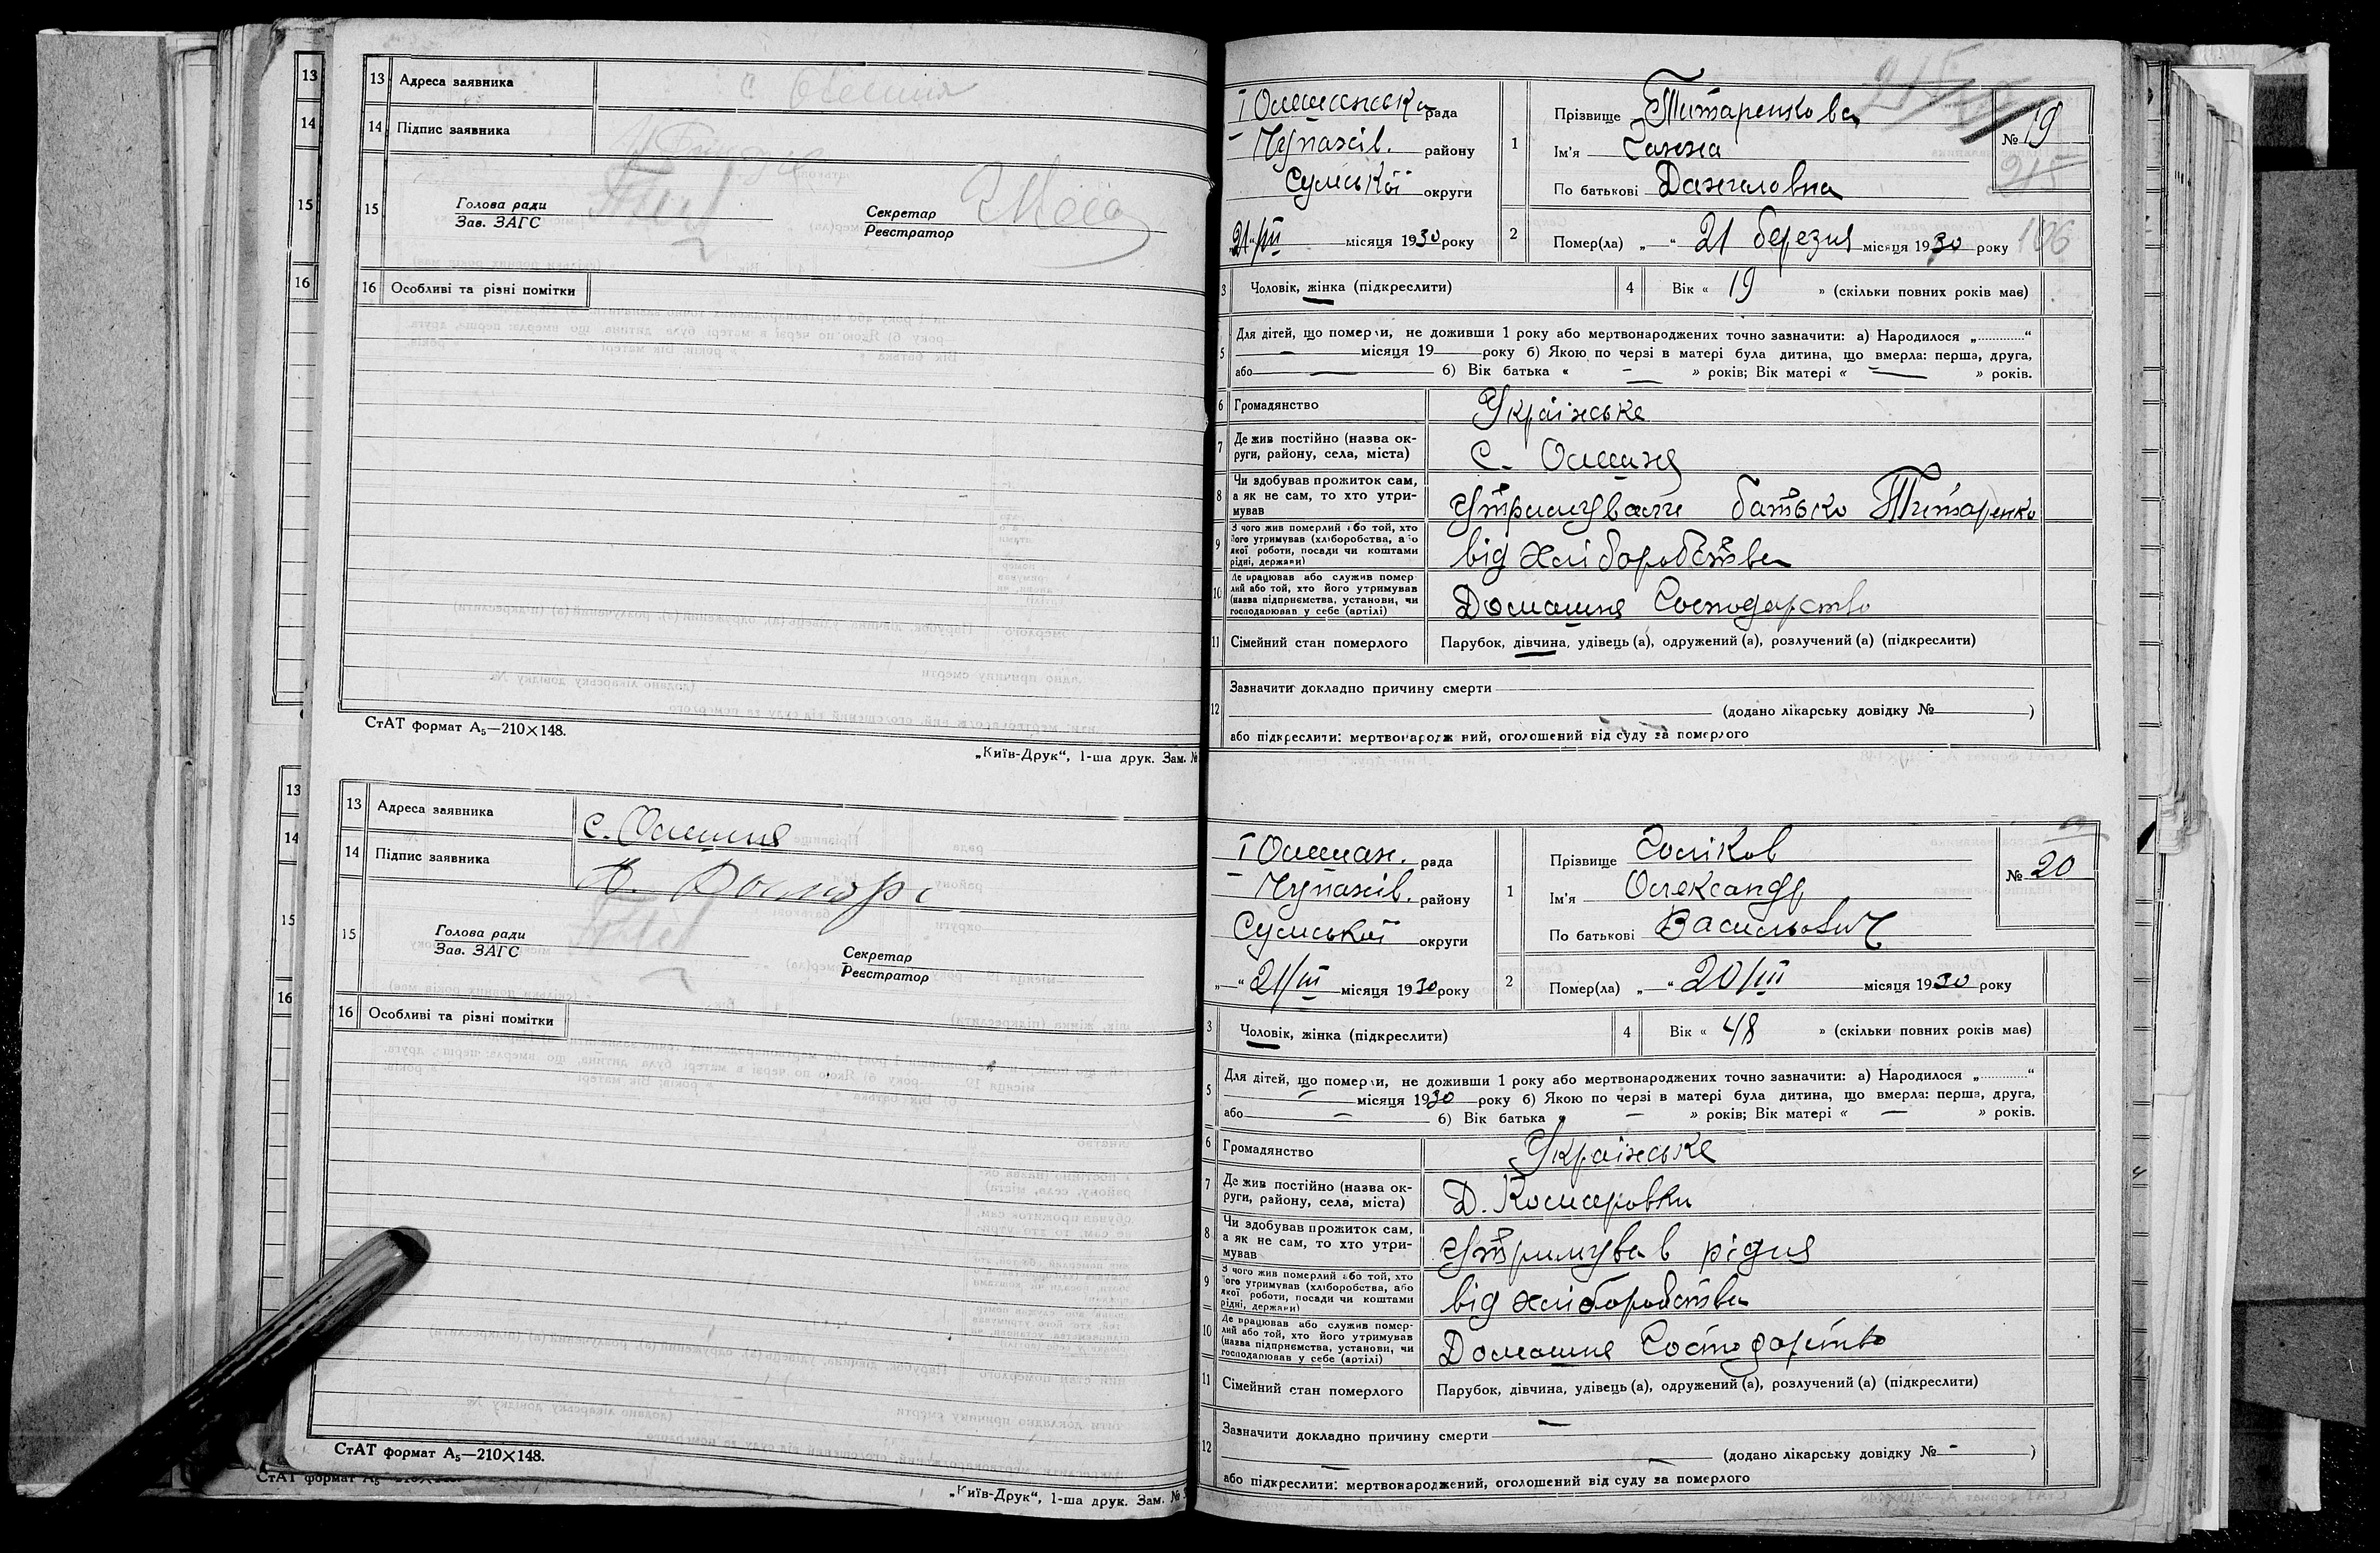 13 Адреса заявника
14 Підпис заявника
15 Голова ради
Зав. ЗАГС
Секретар
Реєстратор
16 Особливі та різні помітки
СтАТ формат А₅—210×148.
„Київ-Друк“, 1-ша друк. Зам. №
13 Адреса заявника с.
14 Підпис заявника
15 Голова ради
Зав. ЗАГС
Секретар
Реєстратор
16 Особливі та різні помітки
СтАТ формат А₅—210×148.
„Київ-Друк“, 1-ша друк. Зам. №
рада
Чупахів. району
Сумської округи
„21“/III місяця 1930 року
1 Прізвище Титаренкова
Ім'я Ганна
По батькові Даниловна
№ 19
215
2 Помер(ла) „—“ 21 березня місяця 1930 року
106
3 Чоловік, жінка (підкреслити) 4 Вік « 19 » (скільки повних років має)
5 Для дітей, що померли, не доживши 1 року або мертвонароджених точно зазначити: а) Народилося „............“
— місяця 19 року б) Якою по черзі в матері була дитина, що вмерла: перша, друга,
або — б) Вік батька « — » років; Вік матері « — » років.
6 Громадянство Українське
7 Де жив постійно (назва округи, району, села, міста) с.
8 Чи здобував прожиток сам, а як не сам, то хто утримував Утримували батько Титаренко
9 З чого жив померлий або той, хто його утримував (хліборобства, або якої роботи, посади чи коштами рідні, держави) від хліборобства
10 Де працював або служив померлий або той, хто його утримував (назва підприємства, установи, чи господарював у себе (артілі) Домашня Господарство
11 Сімейний стан померлого Парубок, дівчина, удівець (а), одружений (а), розлучений (а) (підкреслити)
12 Зазначити докладно причину смерти
(додано лікарську довідку № )
або підкреслити: мертвонароджений, оголошений від суду за померлого
рада
Чупахів. району
Сумської округи
„—“ 21/III місяця 1930 року
1 Прізвище
Ім'я Олександр
По батькові Васильович
№ 20
2 Помер(ла) „—“ 20/III місяця 1930 року
3 Чоловік, жінка (підкреслити) 4 Вік « 48 » (скільки повних років має)
5 Для дітей, що померли, не доживши 1 року або мертвонароджених точно зазначити: а) Народилося „............“
— місяця 1930 року б) Якою по черзі в матері була дитина, що вмерла: перша, друга,
або — б) Вік батька « — » років; Вік матері « — » років.
6 Громадянство Українське
7 Де жив постійно (назва округи, району, села, міста) Д. Комаровка
8 Чи здобував прожиток сам, а як не сам, то хто утримував Утримував рідня
9 З чого жив померлий або той, хто його утримував (хліборобства, або якої роботи, посади чи коштами рідні, держави) від хліборобства
10 Де працював або служив померлий або той, хто його утримував (назва підприємства, установи, чи господарював у себе (артілі) Домашня Господарство
11 Сімейний стан померлого Парубок, дівчина, удівець (а), одружений (а), розлучений (а) (підкреслити)
12 Зазначити докладно причину смерти —
(додано лікарську довідку № — )
або підкреслити: мертвонароджений, оголошений від суду за померлого